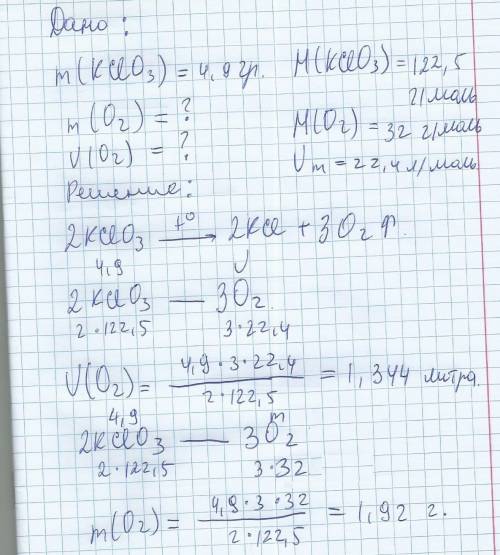 Дано:
m(KClO₃) = 4,9 гр. M(KClO₃) = 122,5 г/моль
m(O₂) = ? M(O₂) = 32 г/моль
V(O₂) = ? Vm = 22,4 л/моль
Решение:
2KClO₃ —t°→ 2KCl + 3O₂↑.
4,9 V
2KClO₃ — 3O₂.
2·122,5 3·22,4
V(O₂) = (4,9·3·22,4)/(2·122,5) = 1,344 литра.
4,9 m
2KClO₃ — 3O₂
2·122,5 3·32
m(O₂) = (4,9·3·32)/(2·122,5) = 1,92 г.